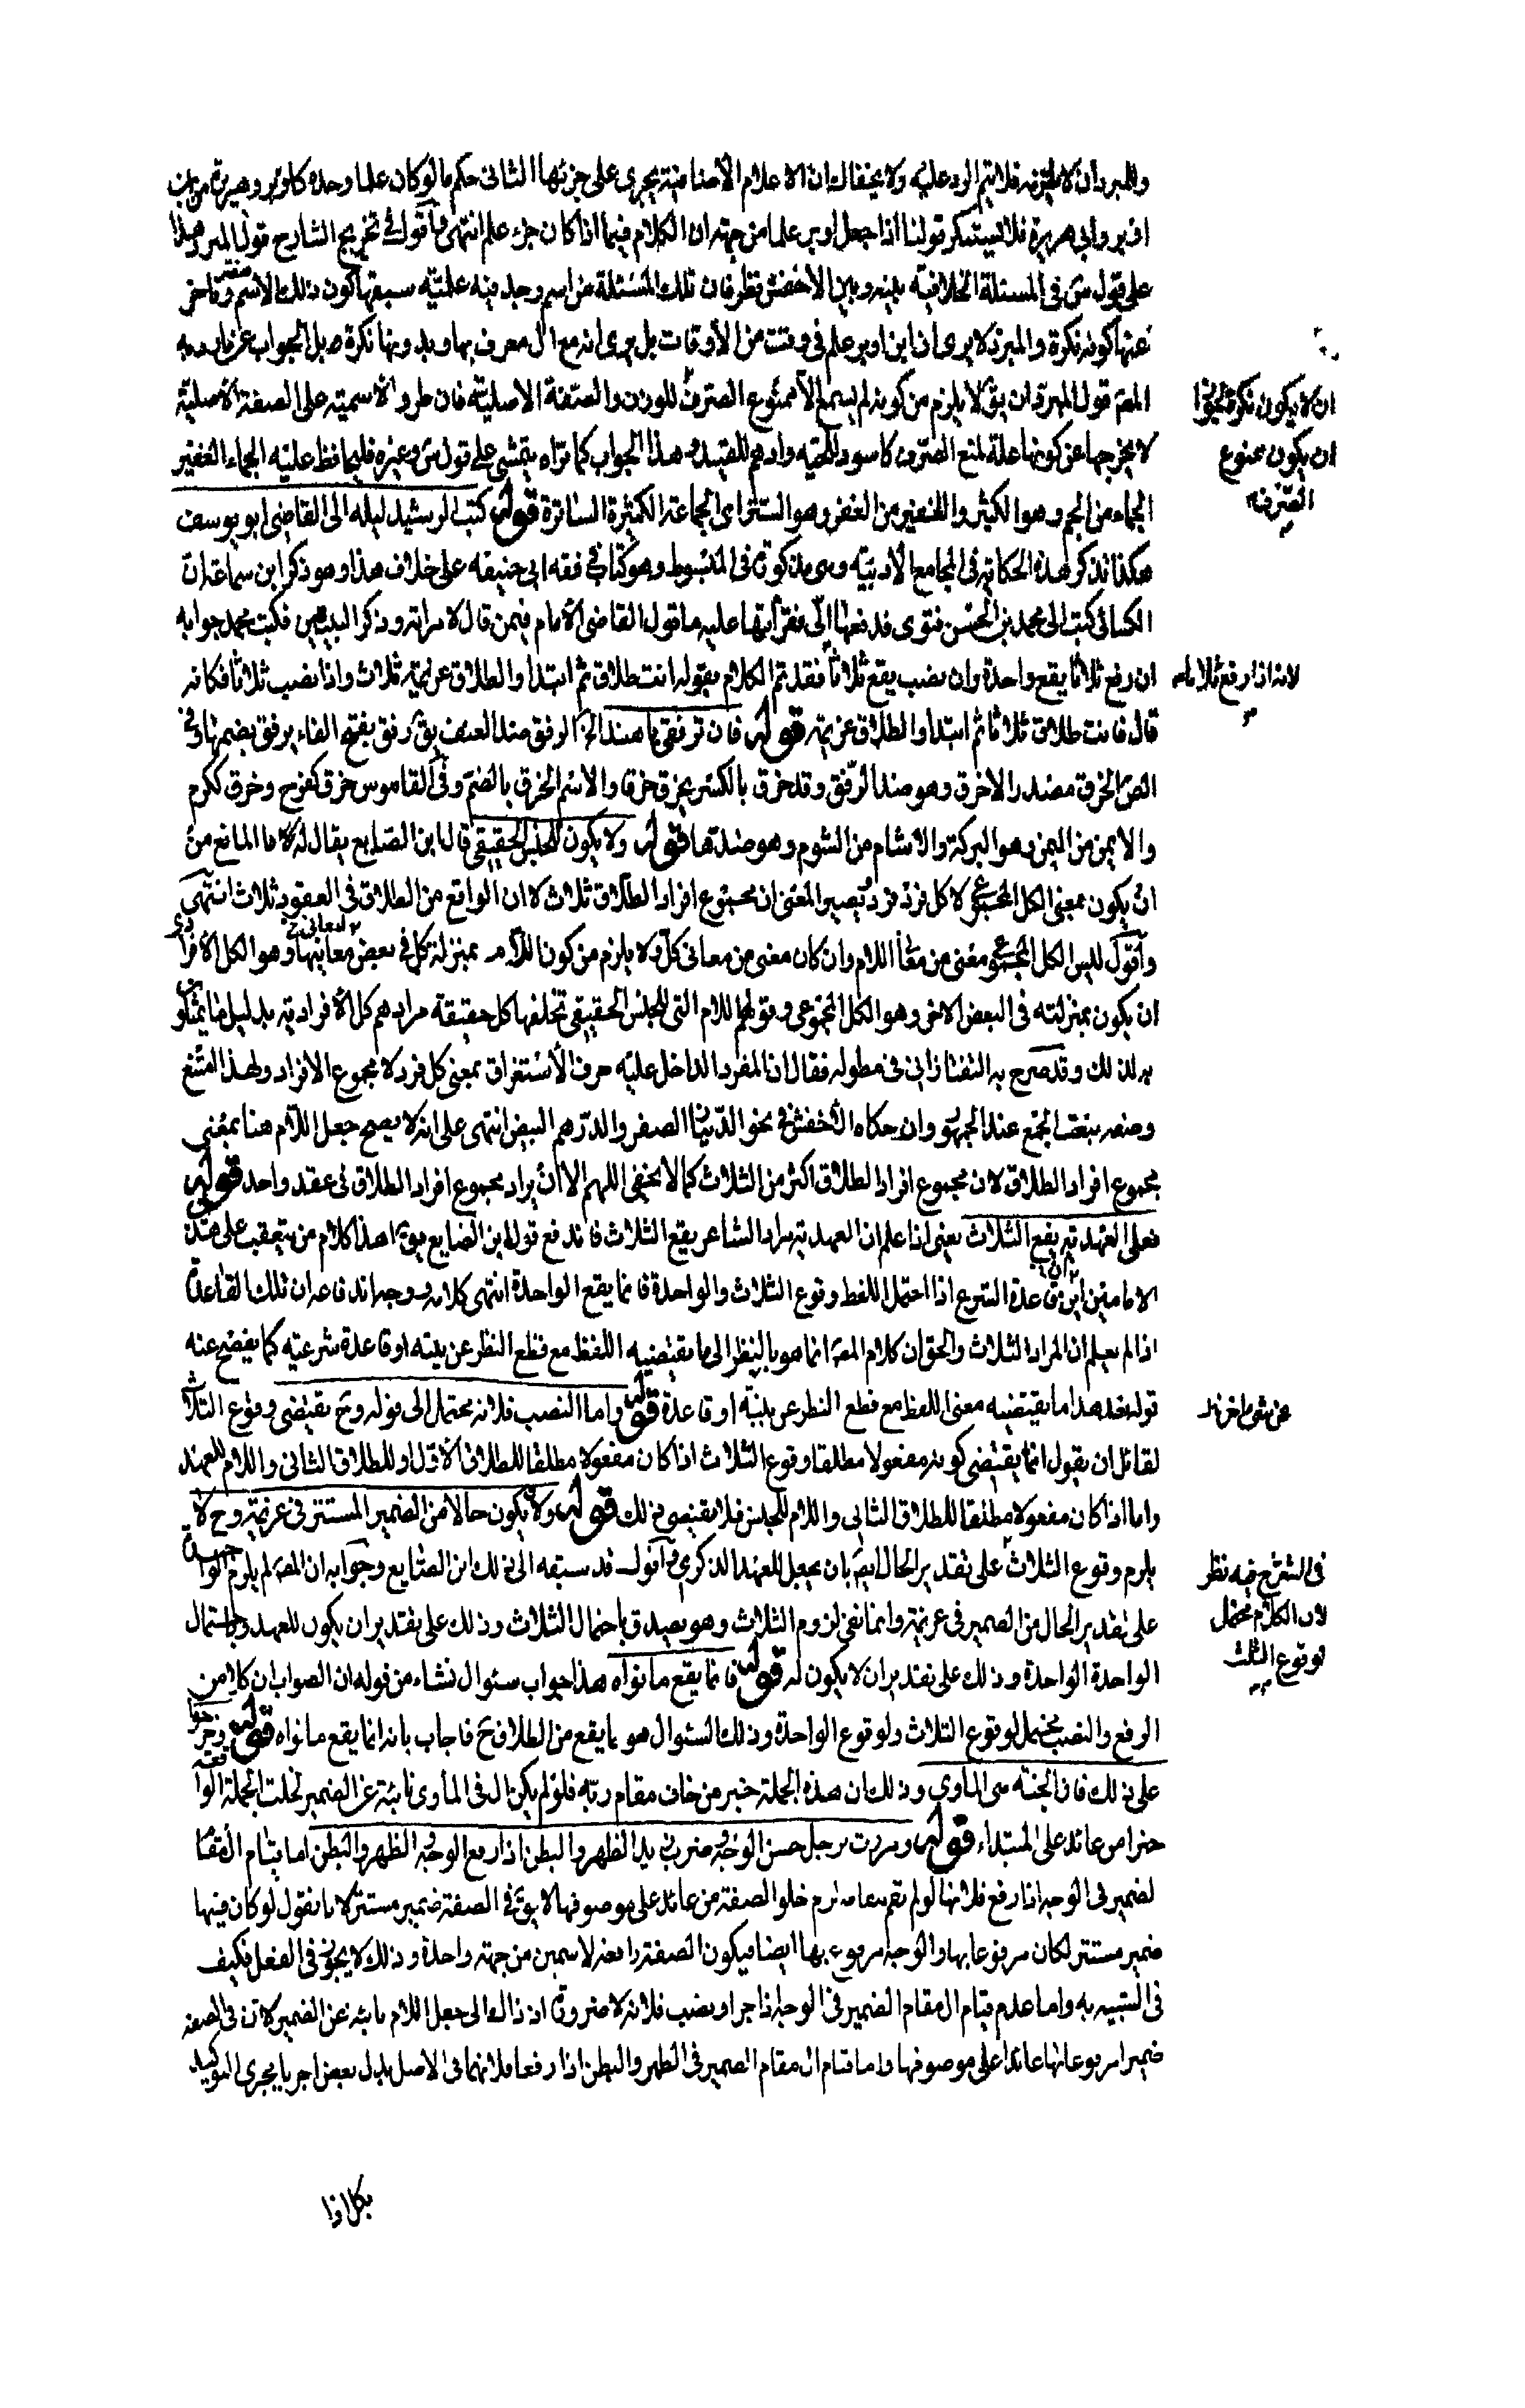 وللمبرد ان لا يلتزمه فلا يتم الرد عليه ولا يخفاك ان الاعلام الاضافية يجري على جزئها الثاني حكم ما لو كان علما وحده كاوبر وهريرة من بنات
اوبر وابي هريرة فلا يستنكر قولنا اذا جعل اوبر علما من جهة ان الكلام فيما اذا كان جزء علم انتهى واقول في تخريج الشارح قول المبرد هذا
على قول س في المسئلة الخلافية بينه وبين الاخفش نظر فان تلك المسئلة من اسم وجد فيه علمية سبقها كون ذلك الاسم صفة وتاخر
عنها كونه نكرة والمبرد لا يرى ان ابن اوبر علم في وقت من الاوقات بل يرى انه مع ال معرف بها وبدونها نكرة
المص قول المبرد ان يق لا يلزم من كونه لم يسمع الا ممنوع الصرف للوزن والصفة الاصلية فان طرو الاسمية على الصفة الاصلية
ان لا يكون نكرة لجواز
ان يكون ممنوع
الصرف
لا يخرجها عن كونها علة لمنع الصرف كاسود للحية وادهم للقيد وهذا الجواب كما تراه يتمشى على قول س وغيره فليحافظ عليه الجماء الغفير
الجماء من الجم وهو الكثير والغفير من الغفر وهو الستر اي الجماعة الكثيرة الساترة قوله كتب الرشيد ليلة الى القاضي ابو يوسف
هكذا تذكر هذه الحكاية في المجامع الادبية وهي مذكورة في المبسوط وهو كتاب في فقه ابي حنيفة على خلاف هذا وهو ذكر ابن سماعة ان
الكسائي كتب الى محمد بن الحسن فتوى فدفعها الي فقراتها عليه ما قول القاضي الامام فيمن قال لامراته وذكر البيتين فكتب محمد جوابه
ان رفع ثلاثا يقع واحدة وان نصب يقع ثلاثا فقد تم الكلام بقوله انت طلاق ثم ابتدا والطلاق عزيمة ثلاث واذا نصب ثلاثا فكانه
لانه اذا رفع ثلاثا
قال فانت طلاق ثلاثا ثم ابتدا والطلاق عزيمة قوله فان ترفقي يا هند الخ الرفق ضد العنف يق رفق بفتح الفاء يرفق بضمها وفي
الص الخرق مصدر الاخرق وهو ضد الرفق وقد خرق بالكسر يخرق خرقا والاسم الخرق بالضم وفي القاموس خرق كفرح وخرق ككرم
والايمن من اليمن وهو البركة والاشام من الشوم وهو ضدها قوله ولا يكون للجنس الحقيقي قال ابن الصايع يقال له لا ما المانع من
ان يكون بمعنى الكل المجموعي لا كل فرد فرد فيصير المعنى ان مجموع افراد الطلاق ثلاث لان الواقع من الطلاق في العقود ثلاث انتهى
واقول ليس الكل المجموعي معنى من معاني اللام وان كان معنى من معاني كل ولا يلزم من كون اللام بمنزلة كل في بعض معانيها وهو الكل الافرادي
ان يكون بمنزلته في البعض الاخر وهو الكل المجموعي وقولهم اللام التي للجنس الحقيقي تخلفها كل حقيقة مرادهم كل الافرادية بدليل ما يمثلون
به لذلك وقد صرح به التفتازاني في مطوله فقال ان المفرد الداخل عليه حرف الاستغراق بمعنى كل فرد لا مجموع الافراد ولهذا امتنع
وصفه بنعت الجمع عند الجمهور وان حكاه الاخفش في نحو الدينار الصفر والدرهم البيض انتهى على انه لا يصح جعل اللام هنا بمعنى
مجموع افراد الطلاق لان مجموع افراد الطلاق اكثر من الثلاث كما لا يخفى اللهم الا ان يراد مجموع افراد الطلاق في عقد واحد قوله
فعلى العهدية يقع الثلاث يعني اذا علم ان العهدية مراد الشاعر يقع الثلاث فاندفع قول ابن الصايع هذا كلام من يتعقب على هذين
الامامين اين قاعدة الشرع اذا احتمل اللفظ وقوع الثلاث والواحدة فانما يقع الواحدة انتهى كلامه ووجه اندفاعه ان تلك القاعدة
اذا لم يعلم ان المراد الثلاث والحق ان كلام المص انما هو بالنظر الى ما يقتضيه اللفظ مع قطع النظر عن نيته او قاعدة شرعية كما يفصح عنه
قوله بعد هذا ما يقتضيه معنى اللفظ مع قطع النظر عن نيته او قاعدة قوله واما النصب فلانه محتمل الى قوله وح يقتضي وقوع الثلاث
عن شئ اخر
لقائل ان يقول انما يقتضي كونه مفعولا مطلقا وقوع الثلاث اذا كان مفعولا مطلقا للطلاق الاول او للطلاق الثاني واللام للعهد
واما اذا كان مفعولا مطلقا للطلاق الثاني واللام للجنس فلا يقتضي ذلك قوله ولا يكون حالا من الضمير المستتر في عزيمة وح لا
يلزم وقوع الثلاث على تقدير الحال ايضا بان يجعل للعهد الذكري واقول قد سبقه الى ذلك ابن الصايع وجوابه ان المص لم يلزم الواحدة
في الشرح فيه نظر
لان الكلام محتمل
لوقوع الثلث
على تقدير الحال من الضمير في عزيمة وانما نفى لزوم الثلاث وهو يصدق باحتمال الثلاث وذلك على تقدير ان يكون للعهد وباحتمال
الواحدة الواحدة وذلك على تقدير ان لا يكون له قوله فانما يقع ما نواه هذا جواب سئوال نشاء من قوله ان الصواب ان كلا من
الرفع والنصب محتمل لوقوع الثلاث ولوقوع الواحدة وذلك السئوال هو ما يقع من الطلاق ح فاجاب بانه انما يقع ما نواه قوله وخرجوا
على ذلك فان الجنة هي الماوى وذلك ان هذه الجملة خبر من خاف مقام ربه فلو لم يكن ال في الماوى نائبة عن الضمير لخلت الجملة الواقعة
خبرا من عائد على المبتداء قوله ومررت برجل حسن الوجه وضرب زيد الظهر والبطن اذا رفع الوجه الظهر والبطن اما قيام ال مقام
الضمير في الوجه اذا رفع فلانها لو لم تقم مقامه لزم خلو الصفة من عائد على موصوفها لا يق في الصفة ضمير مستتر لانا نقول لو كان فيها
ضمير مستتر لكان مرفوعا بها والوجه مرفوع بها ايضا فيكون الصفة رافعة لاسمين من جهة واحدة وذلك لا يجوز في الفعل فكيف
في الشبيه به واما عدم قيام ال مقام الضمير في الوجه اذا جر او نصب فلانه لا ضرورة اذ ذاك الى جعل اللام نائبة عن الضمير لان في الصفة
ضميرا مرفوعا بها عائدا على موصوفها واما قيام ال مقام الضمير في الظهر والبطن اذا رفعا فلانهما في الاصل بدل بعض اجريا مجرى التوكيد
بكل اذا